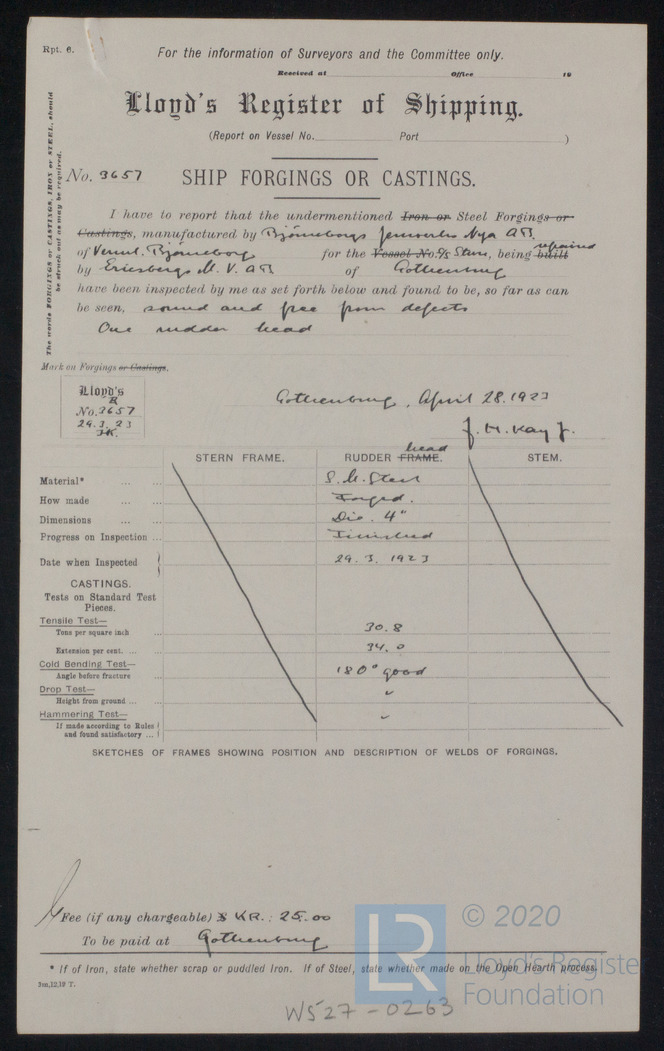 Rpt. 6.
For the information of Surveyors and the Committee only.
Received at Office 19
Lloyd's Register of Shipping.
(Report on Vessel No. Port )
The words FORGINGS or CASTINGS, IRON or STEEL, should
be struck out as may be required.
No. 3657 SHIP FORGINGS OR CASTINGS.
I have to report that the undermentioned Iron or Steel Forgings or
Castings, manufactured by Björneborgs Jernverks Nya AB.
of Verml. Björneborg for the Vessel No. S/S Stern, being built repaired
by Eriksbergs M. V. AB of Gothenburg
have been inspected by me as set forth below and found to be, so far as can
be seen, sound and free from defects
One rudder head
Mark on Forgings or Castings.
Lloyd's
R
No. 3657
29.3.23
JK.
Gothenburg, April 28. 1923
J. H. Kay Jr.
STERN FRAME. RUDDER FRAME. head STEM.
Material* ... ... S. M. Steel
How made ... Forged.
Dimensions ... ... Dia. 4"
Progress on Inspection ... Finished
Date when Inspected 29. 3. 1923
CASTINGS.
Tests on Standard Test
Pieces.
Tensile Test—
Tons per square inch ... 30.8
Extension per cent. ... ... 34.0
Cold Bending Test—
Angle before fracture ... 180° good
Drop Test— "
Height from ground ... ...
Hammering Test— "
If made according to Rules
and found satisfactory ...
SKETCHES OF FRAMES SHOWING POSITION AND DESCRIPTION OF WELDS OF FORGINGS.
Fee (if any chargeable) £ KR.: 25.00
To be paid at Gothenburg
* If of Iron, state whether scrap or puddled Iron. If of Steel, state whether made on the Open Hearth process.
2m,12,19 T.
LR
© 2020
Lloyd's Register
Foundation
WS27-0263